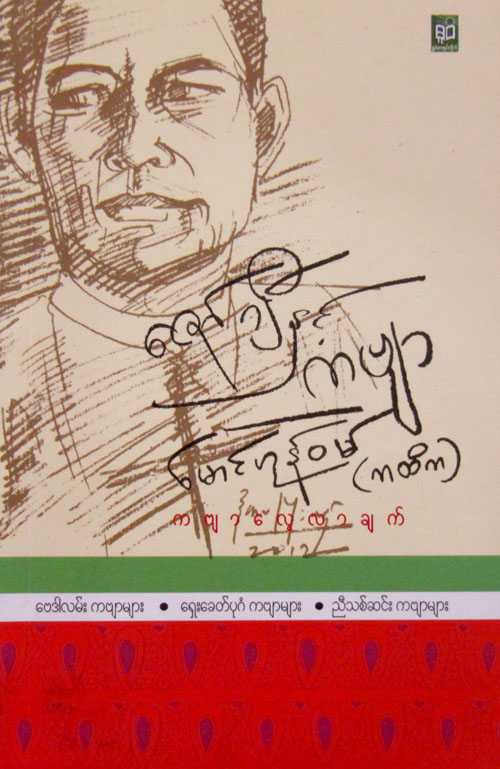 ဇော်ဂျီနှင့်
ကဗျာ
မောင်ဟုန်ဝမ် (ကထိက)
ကဗျာလေ့လာချက်
2012
ဗေဒါလမ်း ကဗျာများ • ရှေးခေတ်ပုဂံ ကဗျာများ • ညီသစ်ဆင်း ကဗျာများ